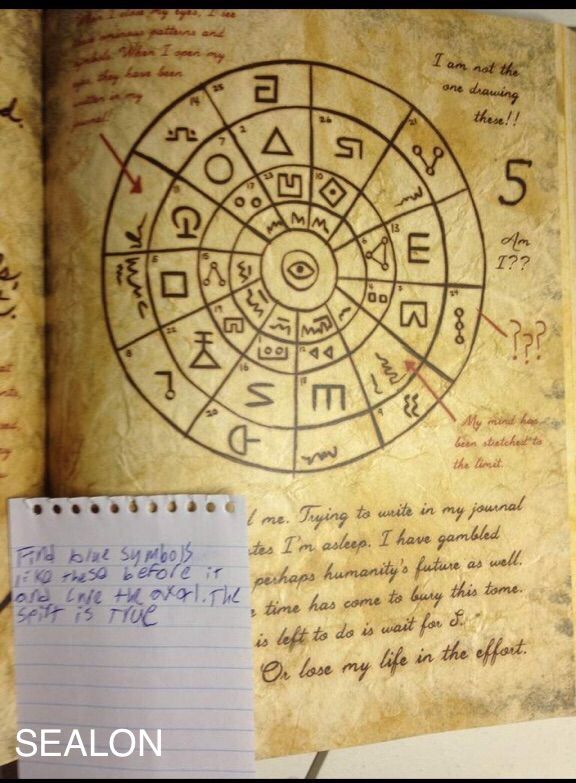 When I close my eyes, I see
ominous patterns and
symbols. When I open my
eyes they have been
written in my
journal!
I am not the
one drawing
these!!
5
Am
I??
???
My mind has
been stretched to
the limit.
me. Trying to write in my journal
I'm asleep. I have gambled
perhaps humanity's future as well.
time has come to bury this tome.
is left to do is wait for S.
Or lose my life in the effort.
Find blue symbols
like these before it
and the The
is TRUE
SEALON